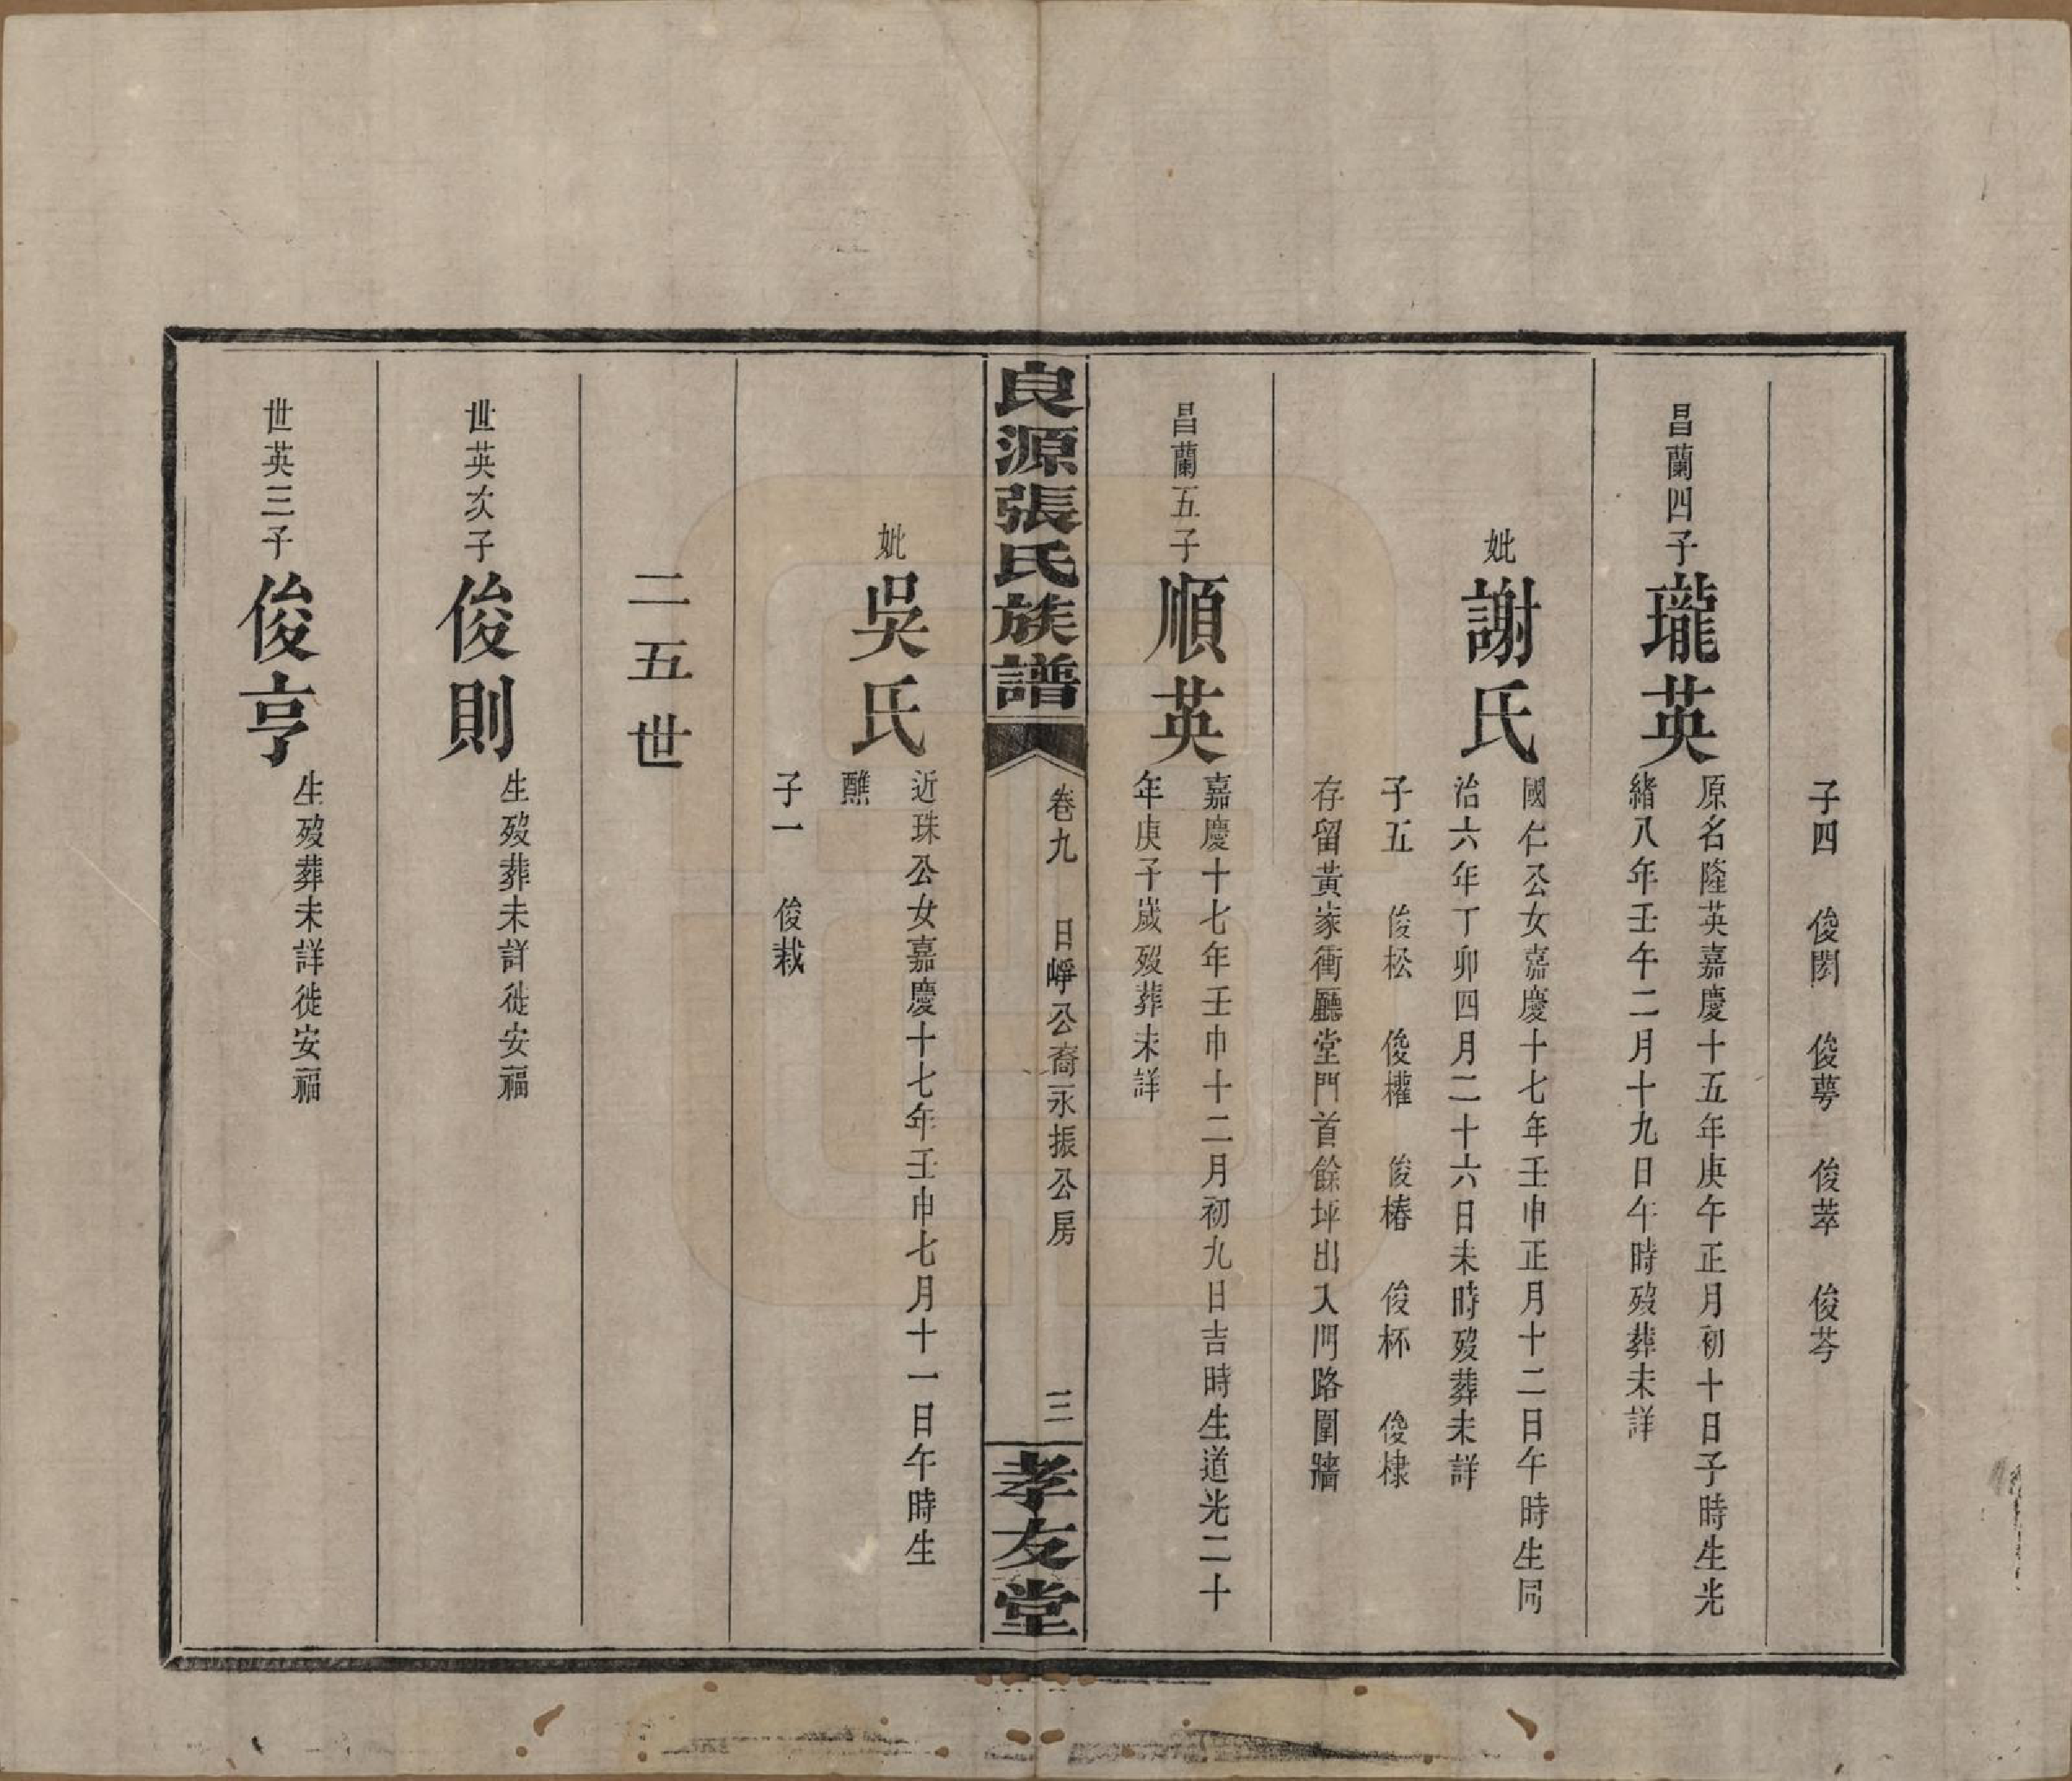 子四　俊閎　俊萼　俊萃　俊芩
昌蘭四子瓏英
原名隆英嘉慶十五年庚午正月初十日子時生光
緒八年壬午二月十九日午時歿葬未詳
妣謝氏
國仁公女嘉慶十七年壬申正月十二日午時生同
治六年丁卯四月二十六日未時歿葬未詳
子五　俊松　俊權　俊椿　俊杯　俊棣
存留黃家衝廳堂門首餘坪出入門路圍牆
昌蘭五子順英
嘉慶十七年壬申十二月初九日吉時生道光二十
年庚子歲歿葬未詳
良源張氏族譜
卷九　日崢公裔永振公房
三
孝友堂
妣吳氏
近珠公女嘉慶十七年壬申七月十一日午時生
醮
子一　俊栽
二五世
世英次子俊則
生歿葬未詳徙安福
世英三子俊亨
生歿葬未詳徙安福